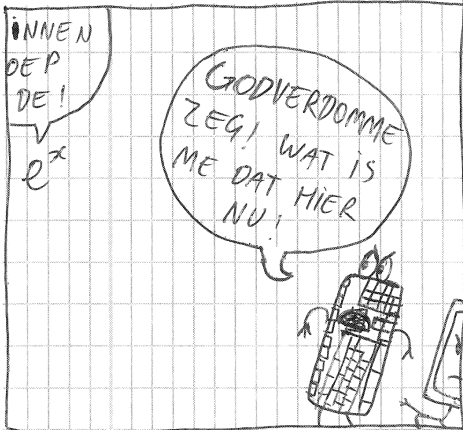 INNEN
OEP
DE!
e^x
GODVERDOMME
ZEG! WAT IS
ME DAT HIER
NU!